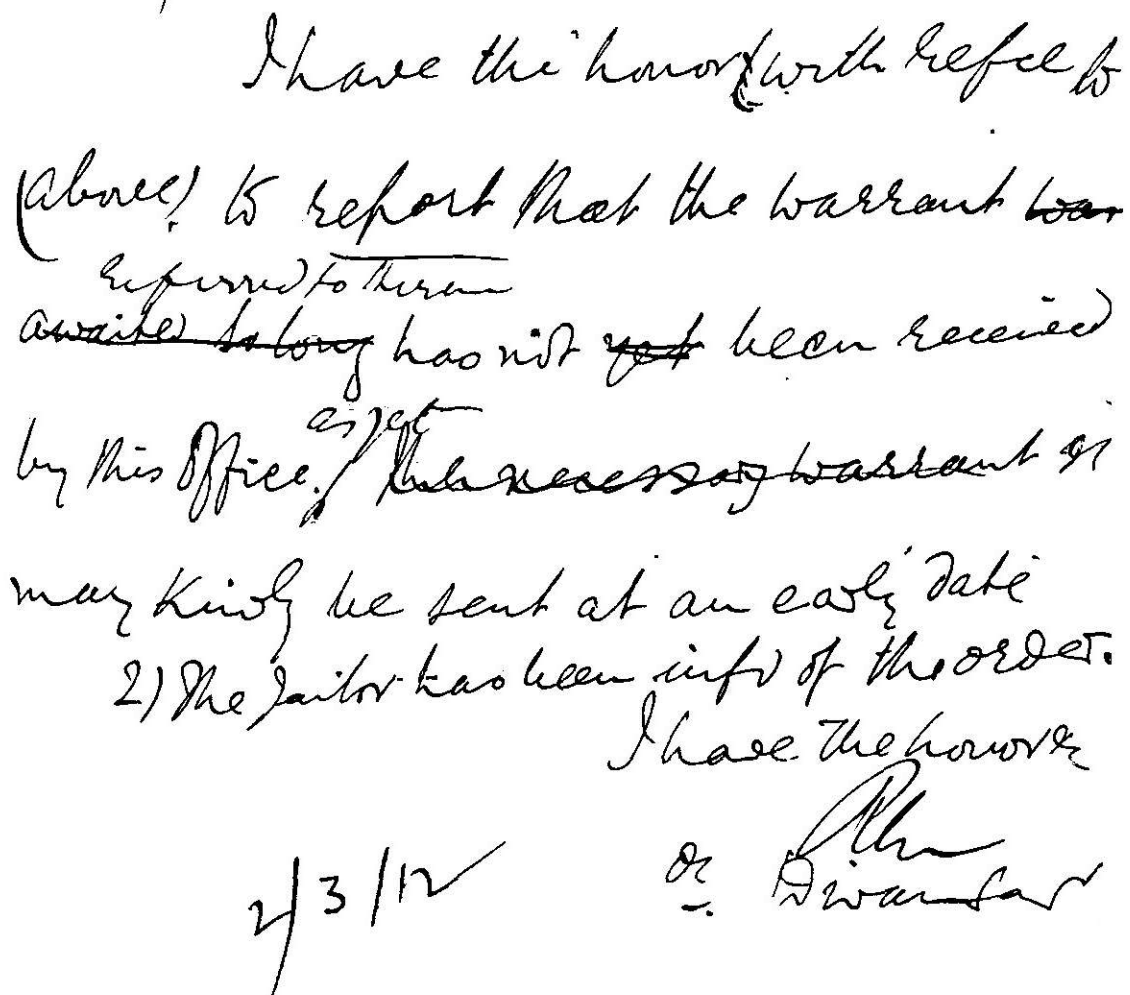 I have the honor (with refce to
above) to report that the warrant was
referred to therein
awaited so long has not yet been received
as yet
by this office. The necessary warrant
may kindly be sent at an early date
2) The Jailor has been infd of the order.
I have the honor &
2/3/12